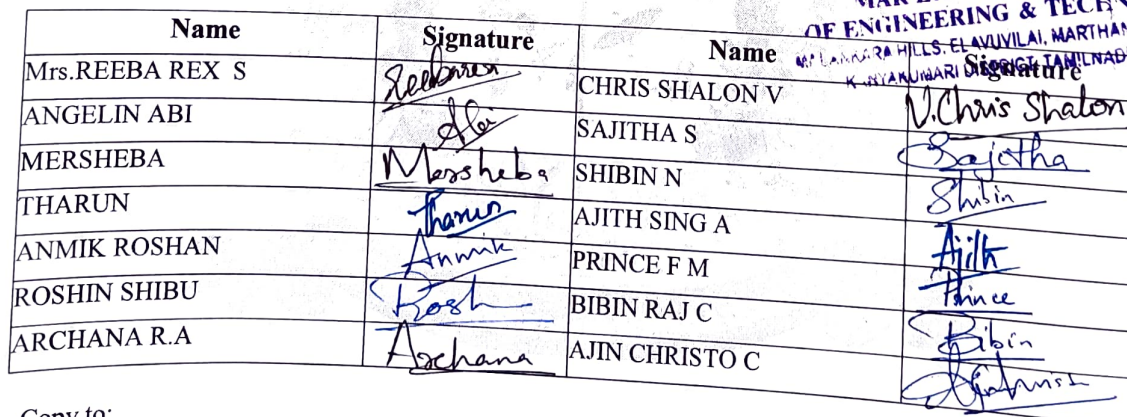 OF ENGINEERING & TECHN
HILLS, ELAVUVILAI, MARTHAN
TAMILNAD
Name Signature Name Signature
Mrs.REEBA REX S Reebarex CHRIS SHALON V V.Chris Shalon
ANGELIN ABI Abi SAJITHA S Sajitha
MERSHEBA Mersheba SHIBIN N Shibin
THARUN Tharun AJITH SING A Ajith
ANMIK ROSHAN Anmik PRINCE F M Prince
ROSHIN SHIBU Rosh BIBIN RAJ C Bibin
ARCHANA R.A Archana AJIN CHRISTO C
Copy to: